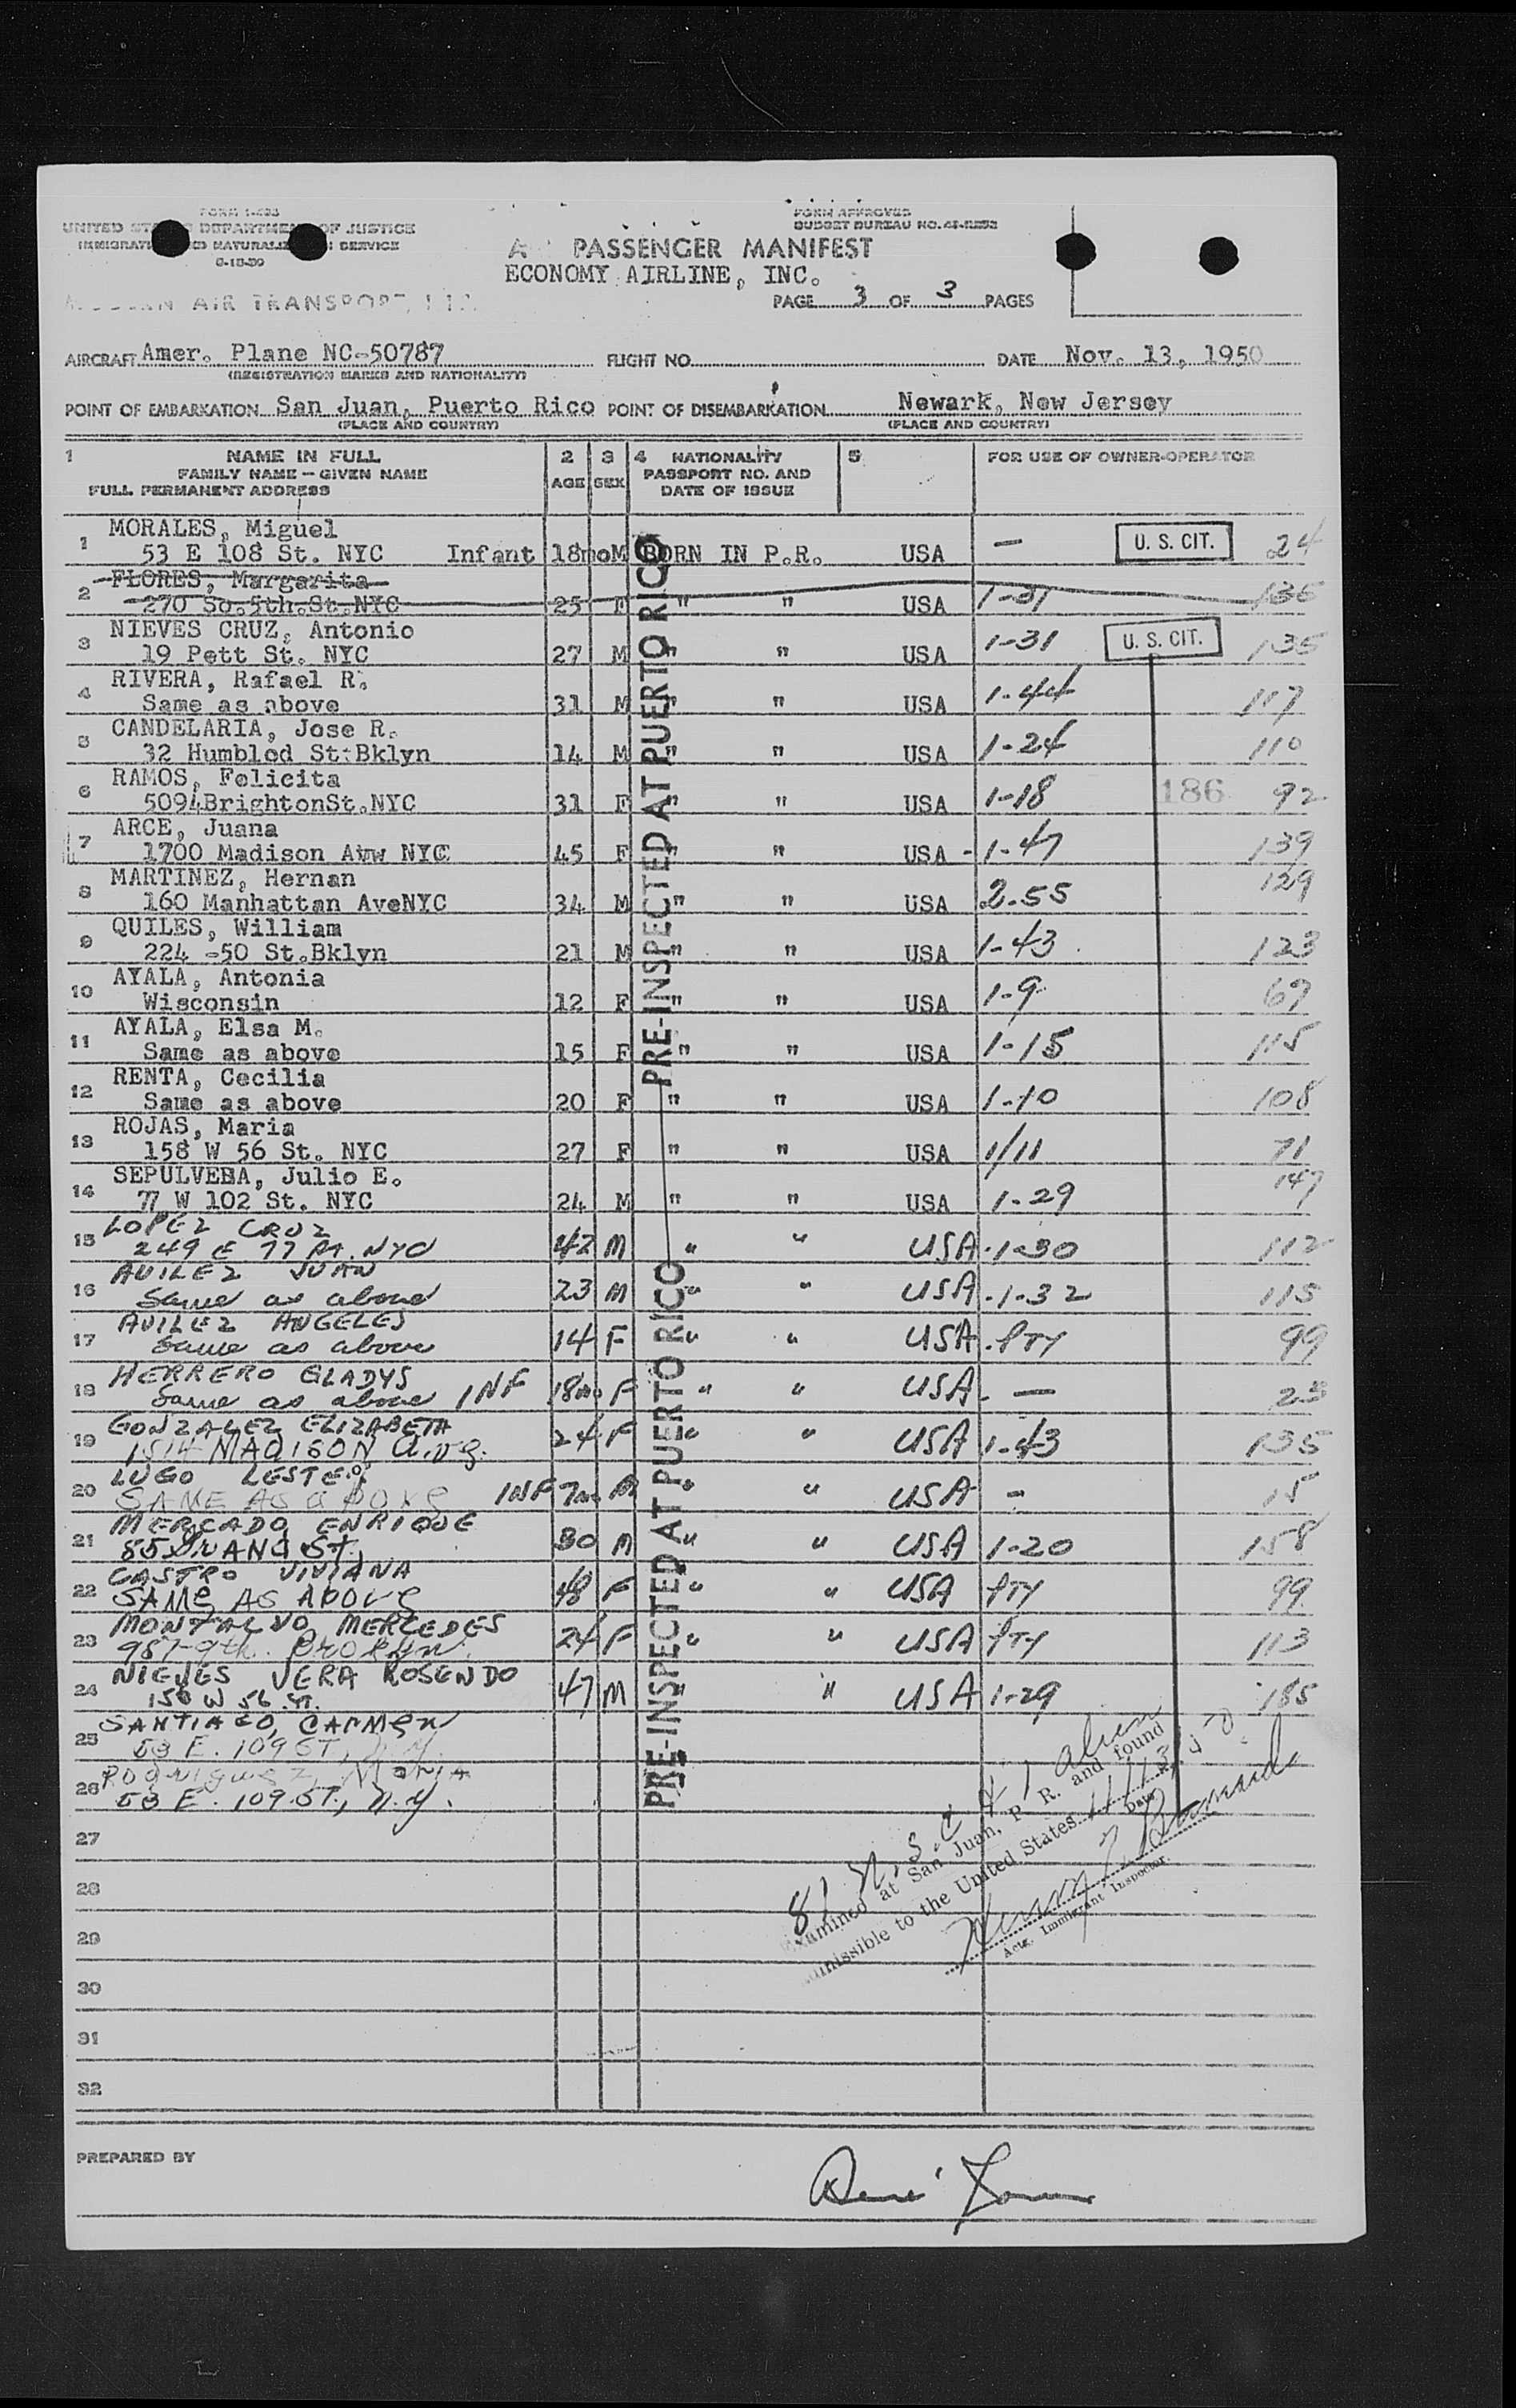 FORM I-433
UNITED STATES DEPARTMENT OF JUSTICE
IMMIGRATION AND NATURALIZATION SERVICE
FORM APPROVED
BUDGET BUREAU NO.
A PASSENGER MANIFEST
ECONOMY AIRLINE, INC.
AIR TRANSPORT,
PAGE 3 OF 3 PAGES
AIRCRAFT Amer. Plane NC-50787 FLIGHT NO. DATE Nov. 13, 1950
(REGISTRATION MARKS AND NATIONALITY)
POINT OF EMBARKATION San Juan, Puerto Rico POINT OF DISEMBARKATION Newark, New Jersey
(PLACE AND COUNTRY) (PLACE AND COUNTRY)
1 NAME IN FULL 2 3 4 NATIONALITY 5 FOR USE OF OWNER-OPERATOR
FAMILY NAME - GIVEN NAME AGE SEX PASSPORT NO. AND
FULL PERMANENT ADDRESS DATE OF ISSUE
MORALES, Miguel
1 53 E 108 St. NYC Infant 18mo M BORN IN P.R. USA — U. S. CIT. 24
FLORES, Margarita
2 270 So.5th.St.NYC 25 F " " USA 1-31 136
NIEVES CRUZ, Antonio
3 19 Pett St. NYC 27 M " " USA 1-31 U. S. CIT. 135
RIVERA, Rafael R.
4 Same as above 31 M " " USA 1-44 117
CANDELARIA, Jose R.
5 32 Humblod St.Bklyn 14 M " " USA 1-24 110
RAMOS, Felicita
6 5094BrightonSt.NYC 31 F " " USA 1-18 186 92
ARCE, Juana
7 1700 Madison Avw NYC 45 F " " USA - 1-47 139
MARTINEZ, Hernan
8 160 Manhattan AveNYC 34 M " " USA 2-55 129
QUILES, William
9 224 -50 St.Bklyn 21 M " " USA 1-43 123
AYALA, Antonia
10 Wisconsin 12 F " " USA 1-9 69
AYALA, Elsa M.
11 Same as above 15 F " " USA 1-15 115
RENTA, Cecilia
12 Same as above 20 F " " USA 1-10 108
ROJAS, Maria
13 158 W 56 St. NYC 27 F " " USA 1/11 71
SEPULVEBA, Julio E.
14 77 W 102 St. NYC 24 M " " USA 1-29 147
LOPEZ CRUZ
15 249 E 77 St. NYC 42 M " " USA 1-30 112
AVILEZ JUAN
16 Same as above 23 M " " USA 1-32 115
AVILEZ ANGELES
17 Same as above 14 F " " USA PTY 99
HERRERO GLADYS
18 Same as above INF 18mo F " " USA — 23
GONZALEZ ELIZABETH
19 1514 MADISON Ave. 24 F " " USA 1-43 135
LUGO LESTER
20 SAME AS ABOVE INF 7mo M " " USA - 15
MERCADO, ENRIQUE
21 30 M " " USA 1-20 158
CASTRO VIVIANA
22 SAME AS ABOVE F " " USA PTY 99
MONTALVO MERCEDES
23 987-9th. 24 F " " USA PTY 113
NIEVES VERA ROSENDO
24 158 W 56 St. 47 M " " USA 1-29 185
SANTIAGO, CARMEN
25 53 E. 109 ST, N.Y.
Rodriguez, MARIA
26 53 E. 109 ST., N.Y.
27
28
29
30
31
32
PRE-INSPECTED AT PUERTO RICO
PRE-INSPECTED AT PUERTO RICO
alien
Examined at San Juan, P. R. and found
admissible to the United States
Date
Actg. Immigrant Inspector.
PREPARED BY